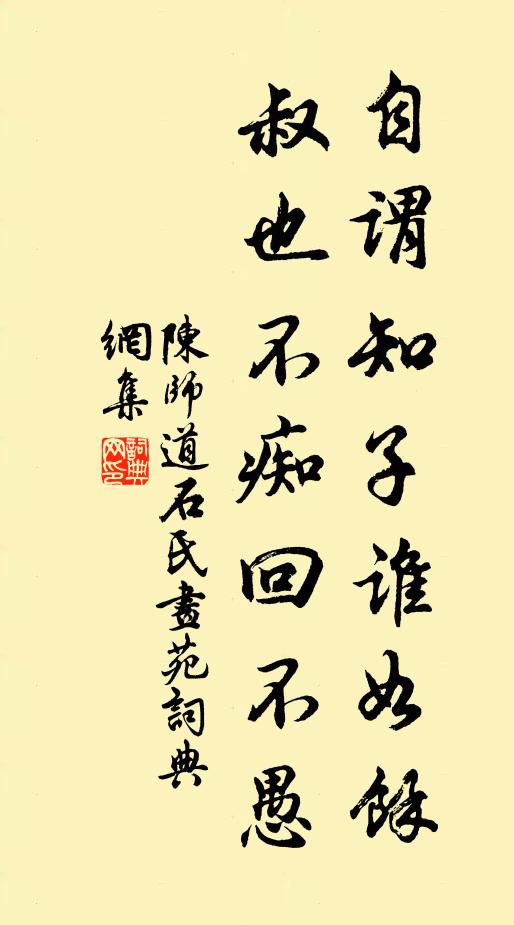 自謂知子誰如餘
叔也不痴回不愚
陳師道石氏畫苑詞典
網集
詞典
網印